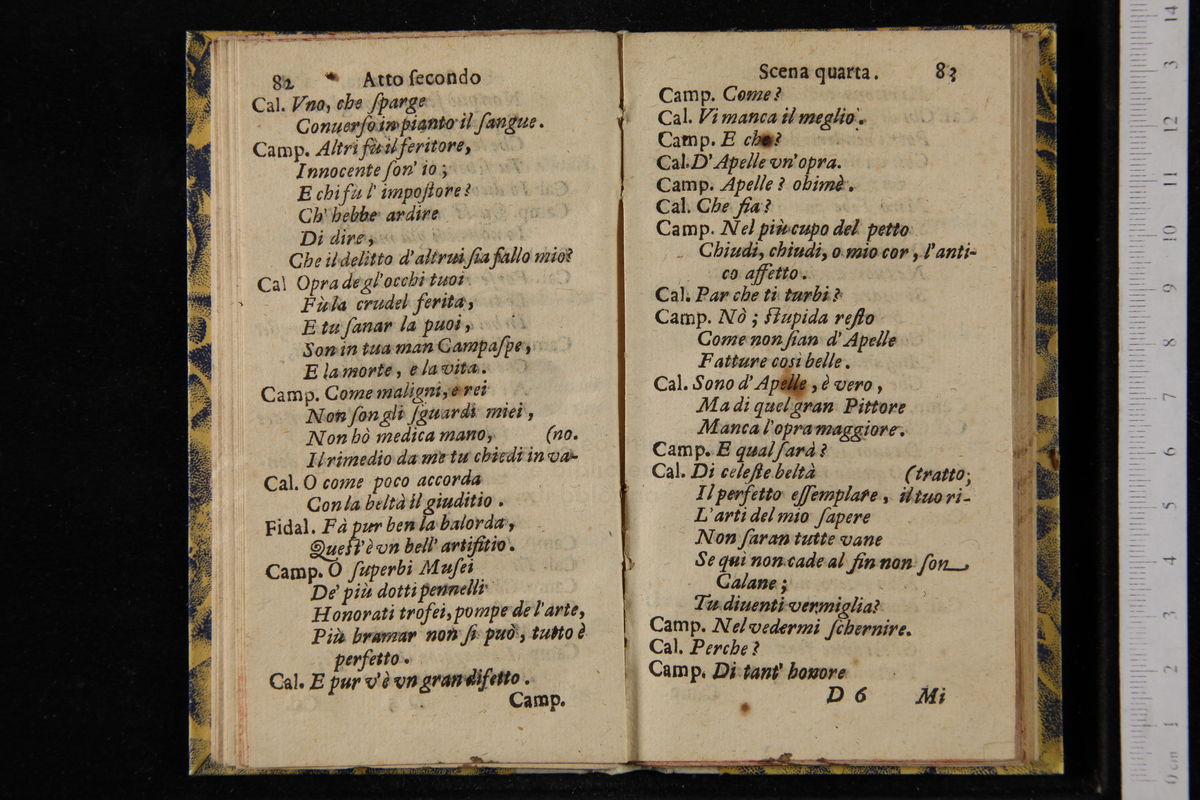 82 Atto ſecondo
Cal. Vno, che ſparge
Conuerſo in pianto il ſangue.
Camp. Altri fù il feritore,
Innocente ſon' io;
E chi fù l' impoſtore?
Ch' hebbe ardire
Di dire,
Che il delitto d'altrui ſia fallo mio?
Cal Opra de gl'occhi tuoi
Fù la crudel ferita,
E tu ſanar la puoi,
Son in tua man Campaſpe,
E la morte, e la vita.
Camp. Come maligni, e rei
Non ſon gli ſguardi miei,
Non hò medica mano, (no.
Il rimedio da me tu chiedi in va-
Cal. O come poco accorda
Con la beltà il giuditio.
Fidal. Fà pur ben la balorda,
Queſt'è vn bell' artifitio.
Camp. O ſuperbi Muſei
De' più dotti pennelli
Honorati trofei, pompe de l'arte,
Più bramar non ſi può, tutto è
perfetto.
Cal. E pur v'è vn gran difetto.
Camp.
Scena quarta. 83
Camp. Come?
Cal. Vi manca il meglio.
Camp. E che?
Cal. D'Apelle vn'opra.
Camp. Apelle? ohimè.
Cal. Che fia?
Camp. Nel più cupo del petto
Chiudi, chiudi, o mio cor, l'anti-
co affetto.
Cal. Par che ti turbi?
Camp. Nò; ſtupida reſto
Come non ſian d'Apelle
Fatture così belle.
Cal. Sono d'Apelle, è vero,
Ma di quel gran Pittore
Manca l'opra maggiore.
Camp. E qual ſarà?
Cal. Di celeſte beltà (tratto;
Il perfetto eſſemplare, il tuo ri-
L'arti del mio ſapere
Non ſaran tutte vane
Se quì non cade al fin non ſon
Calane;
Tu diuenti vermiglia?
Camp. Nel vedermi ſchernire.
Cal. Perche?
Camp. Di tant' honore
D 6 Mi